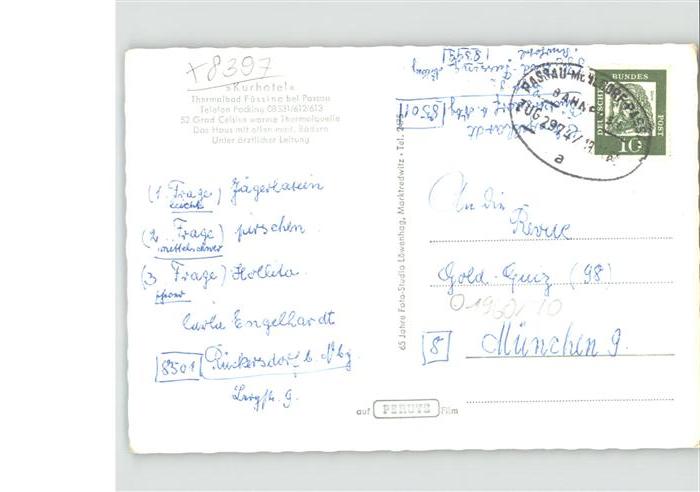 +8397
»Kurhotel«
Thermalbad Füssing bei Passau
Telefon Pocking 08531/612/613
52 Grad Celsius warme Thermalquelle
Das Haus mit allen med. Bädern
Unter ärztlicher Leitung
(1. Frage) Jägerlatein
leicht
(2. Frage) pirschen
mittelschwer
(3. Frage) Hollita
schwer
Carla Engelhardt
8501 Rückersdorf b. Nbg
Bergstr. 9.
65 Jahre Foto-Studio Löwenhag, Marktredwitz · Tel.
auf PERUTZ Film
8399
8501
PASSAU
BAHNP
ZUG 2974
a
DEUTSCHE
BUNDES
POST
10
An die
Revue
Gold-Quiz (98)
8 München 9.